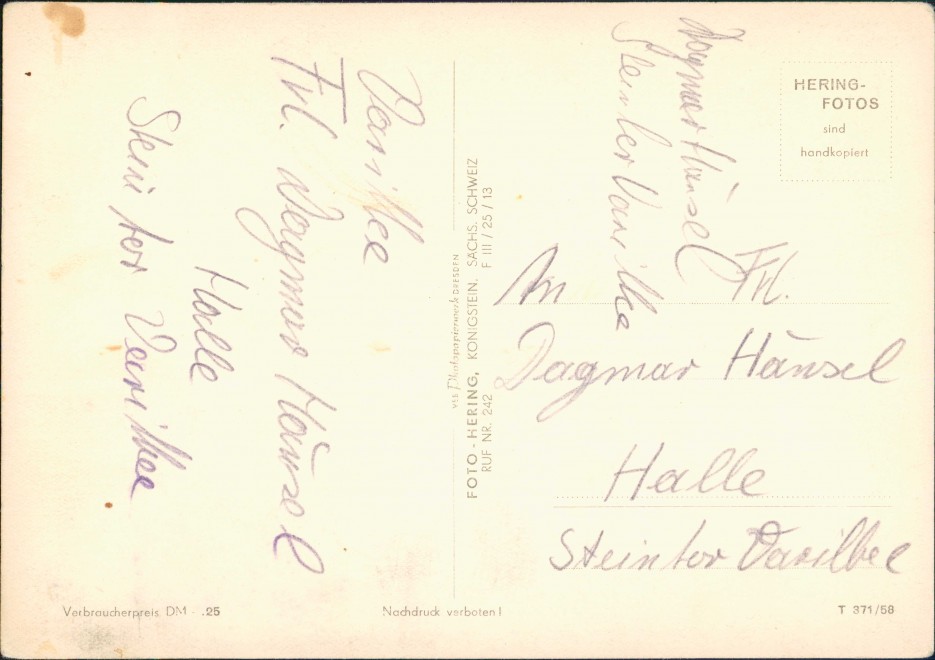 Varitee
Frl. Dagmar Hänsel
Halle
Steintor Varitee
VEB Photopapierwerk DRESDEN
FOTO-HERING, KÖNIGSTEIN, SÄCHS. SCHWEIZ
RUF NR. 242 F III / 25 / 13
Dagmar Hänsel
Steintor Varitee
HERING-
FOTOS
sind
handkopiert
An Frl.
Dagmar Hänsel
Halle
Steintor
Verbraucherpreis DM -.25
Nachdruck verboten!
T 371/58